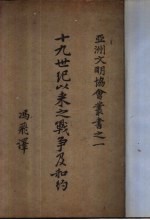 亞洲文明協會叢書之一
十九世紀以來之戰爭及和約
馮飛譯